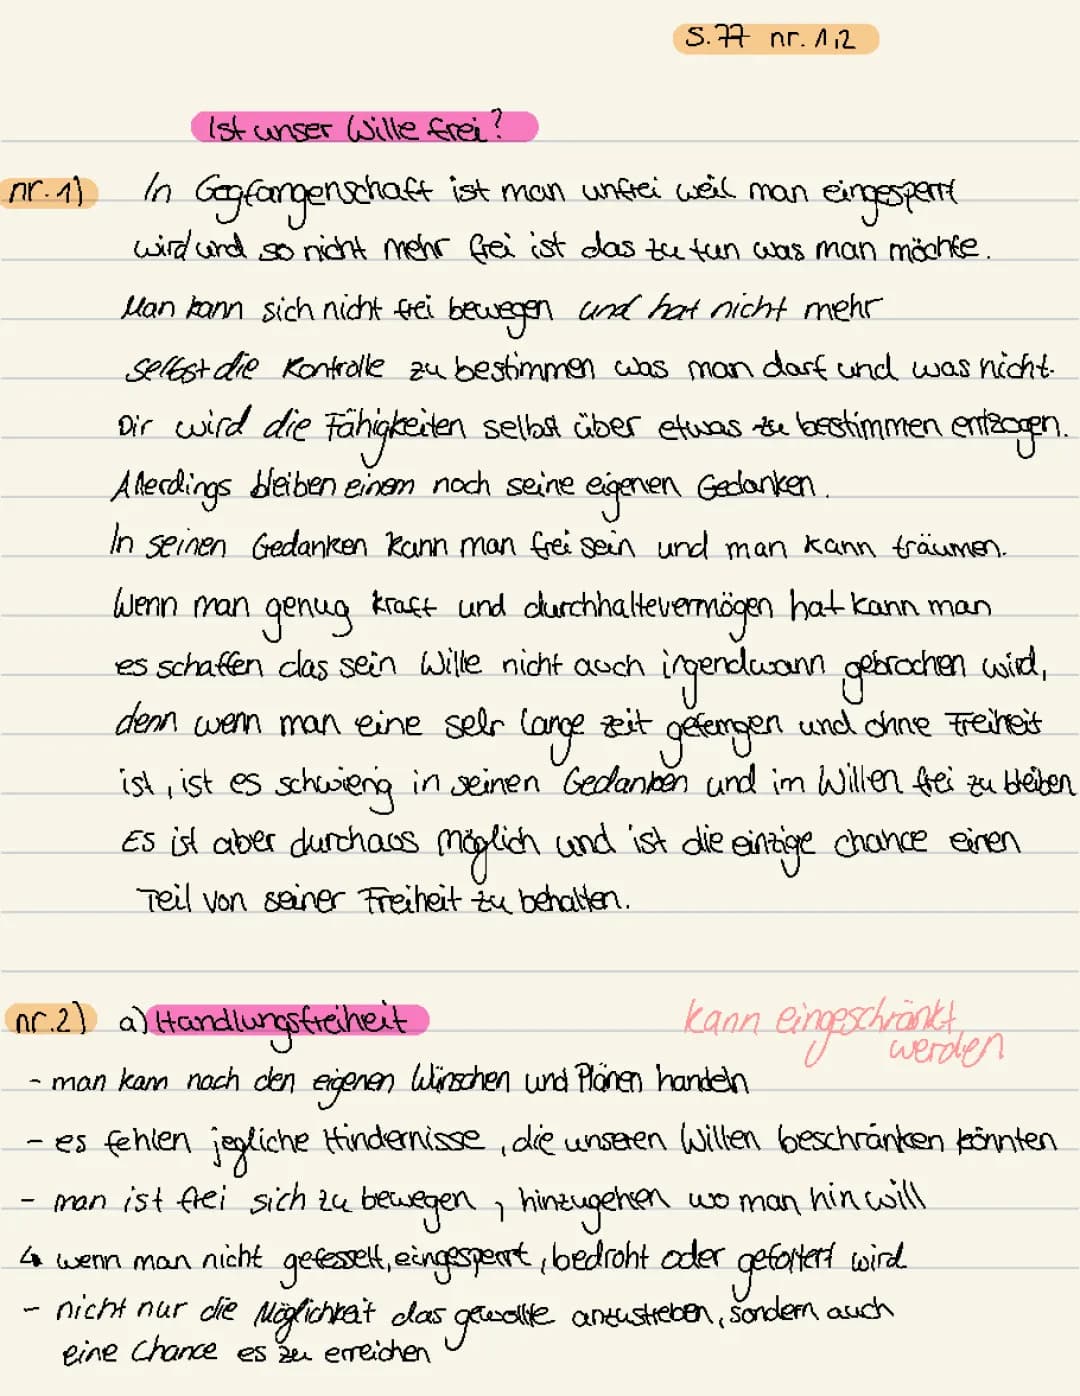 S.77 nr. 1,2
Ist unser Wille frei?
nr. 1) In Gegfangenschaft ist man unfrei weil man eingesperrt
wird und so nicht mehr frei ist das zu tun was man möchte.
Man kann sich nicht frei bewegen und hat nicht mehr
selbst die Kontrolle zu bestimmen was man darf und was nicht.
Dir wird die Fähigkeiten selbst über etwas zu bestimmen entzogen.
Allerdings bleiben einem noch seine eigenen Gedanken.
In seinen Gedanken kann man frei sein und man kann träumen.
Wenn man genug kraft und durchhaltevermögen hat kann man
es schaffen das sein Wille nicht auch irgendwann gebrochen wird,
denn wenn man eine sehr lange zeit gefangen und ohne Freiheit
ist, ist es schwierig in seinen Gedanken und im Willen frei zu bleiben
Es ist aber durchaus möglich und ist die einzige chance einen
Teil von seiner Freiheit zu behalten.
nr.2) a) Handlungsfreiheit kann eingeschränkt
werden
- man kann nach den eigenen Wünschen und Plänen handeln
- es fehlen jegliche Hindernisse, die unseren Willen beschränken könnten
- man ist frei sich zu bewegen, hinzugehen wo man hin will
↳ wenn man nicht gefesselt, eingesperrt, bedroht oder gefoltert wird
- nicht nur die Möglichkeit das gewollte anzustreben, sondern auch
eine Chance es zu erreichen